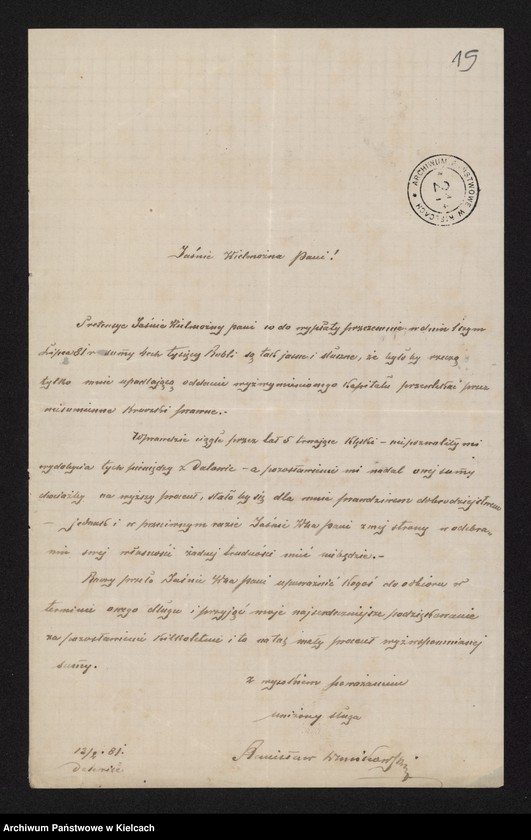 15
ARCHIWUM PAŃSTWOWE W KIELCACH
Jaśnie Wielmożna Pani!
Pretensye Jaśnie Wielmożny pani co do wypłaty przezemnie w dniu 1szym
Lipca 81 r sumy 4ech tysięcy Rubli są tak jasne i słuszne, że było by rzeczą
tylko mnie upadlającą oddanie wyżwymienionego Kapitału przewlekać przez
niesumienne Kroczki prawne.-
Wprawdzie ciągłe przez lat 5 trwające klęski - niepozwoliły mi
wydobycia tych pieniędzy z Dalewic - a pozostawienie mi nadal onej sumy
chociażby na wyższy procent, stało by się dla mnie prawdziwem dobrodziejstwem
- jednak i w przeciwnym razie Jaśnie Wza pani z mej strony w odebra-
niu swej własności żadnej trudności mieć niebędzie.-
Raczy przeto Jaśnie Wza pani upoważnić Kogoś do odbioru w
terminie onego długu i przyjąć moje najserdeczniejsze podziękowanie
za pozostawienie kilkoletnie i to na tak mały procent wyżwspomnianej
sumy.
z wysokiem poważaniem
uniżony sługa
Stanisław
12/2. 81.
Dalewice
Archiwum Państwowe w Kielcach